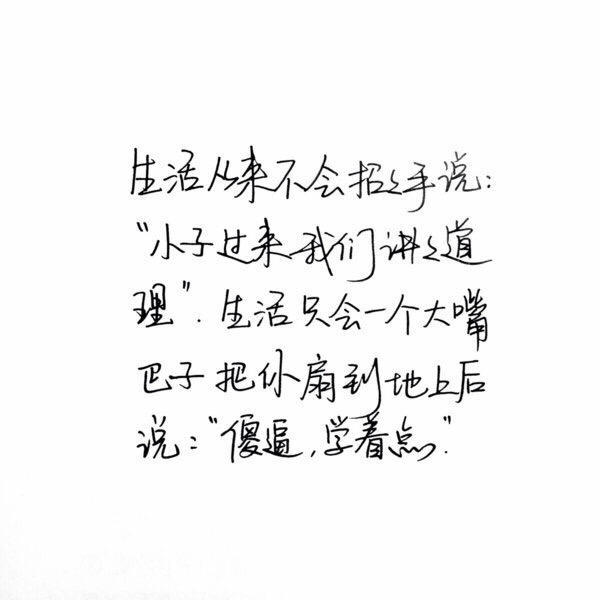 生活从来不会招々手说：
“小子过来我们讲々道
理”．生活只会一个大嘴
巴子把你扇到地上后
说：“傻逼，学着点”．